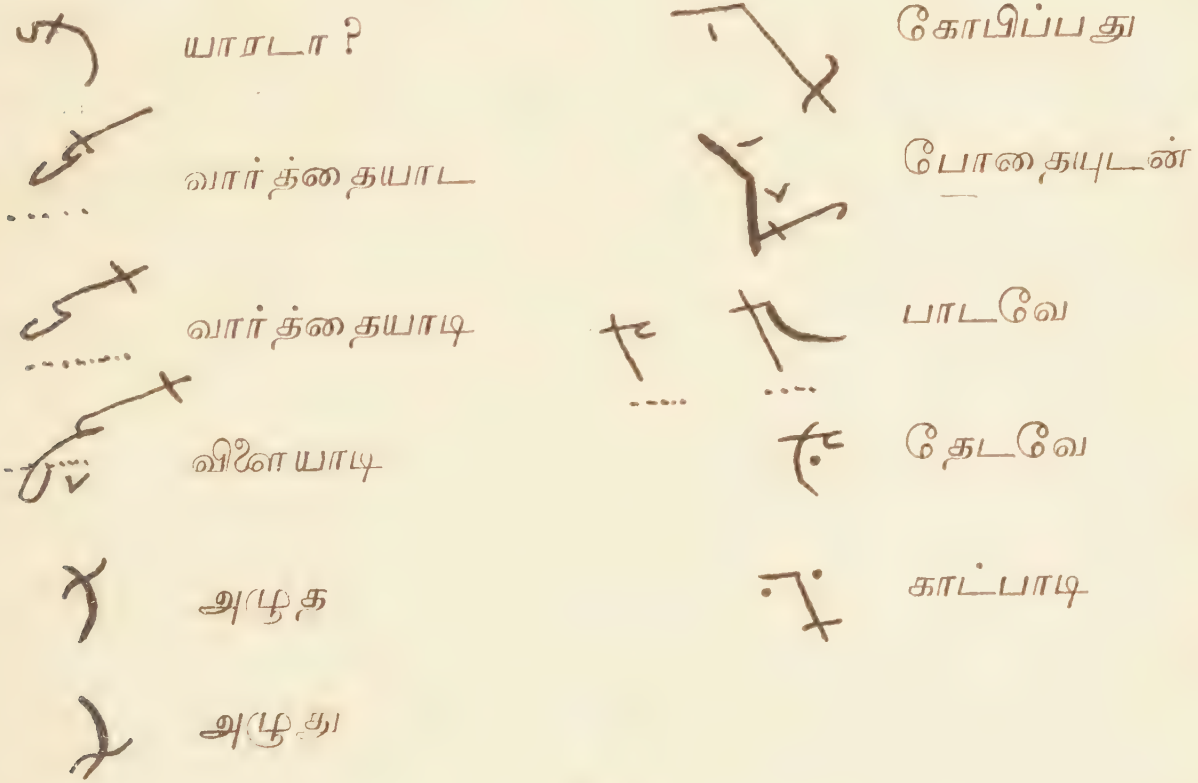 யாரடா ?
வார்த்தையாட
வார்த்தையாடி
விளையாடி
அழுத
அழுது
கோபிப்பது
போதையுடன்
பாடவே
தேடவே
காட்பாடி